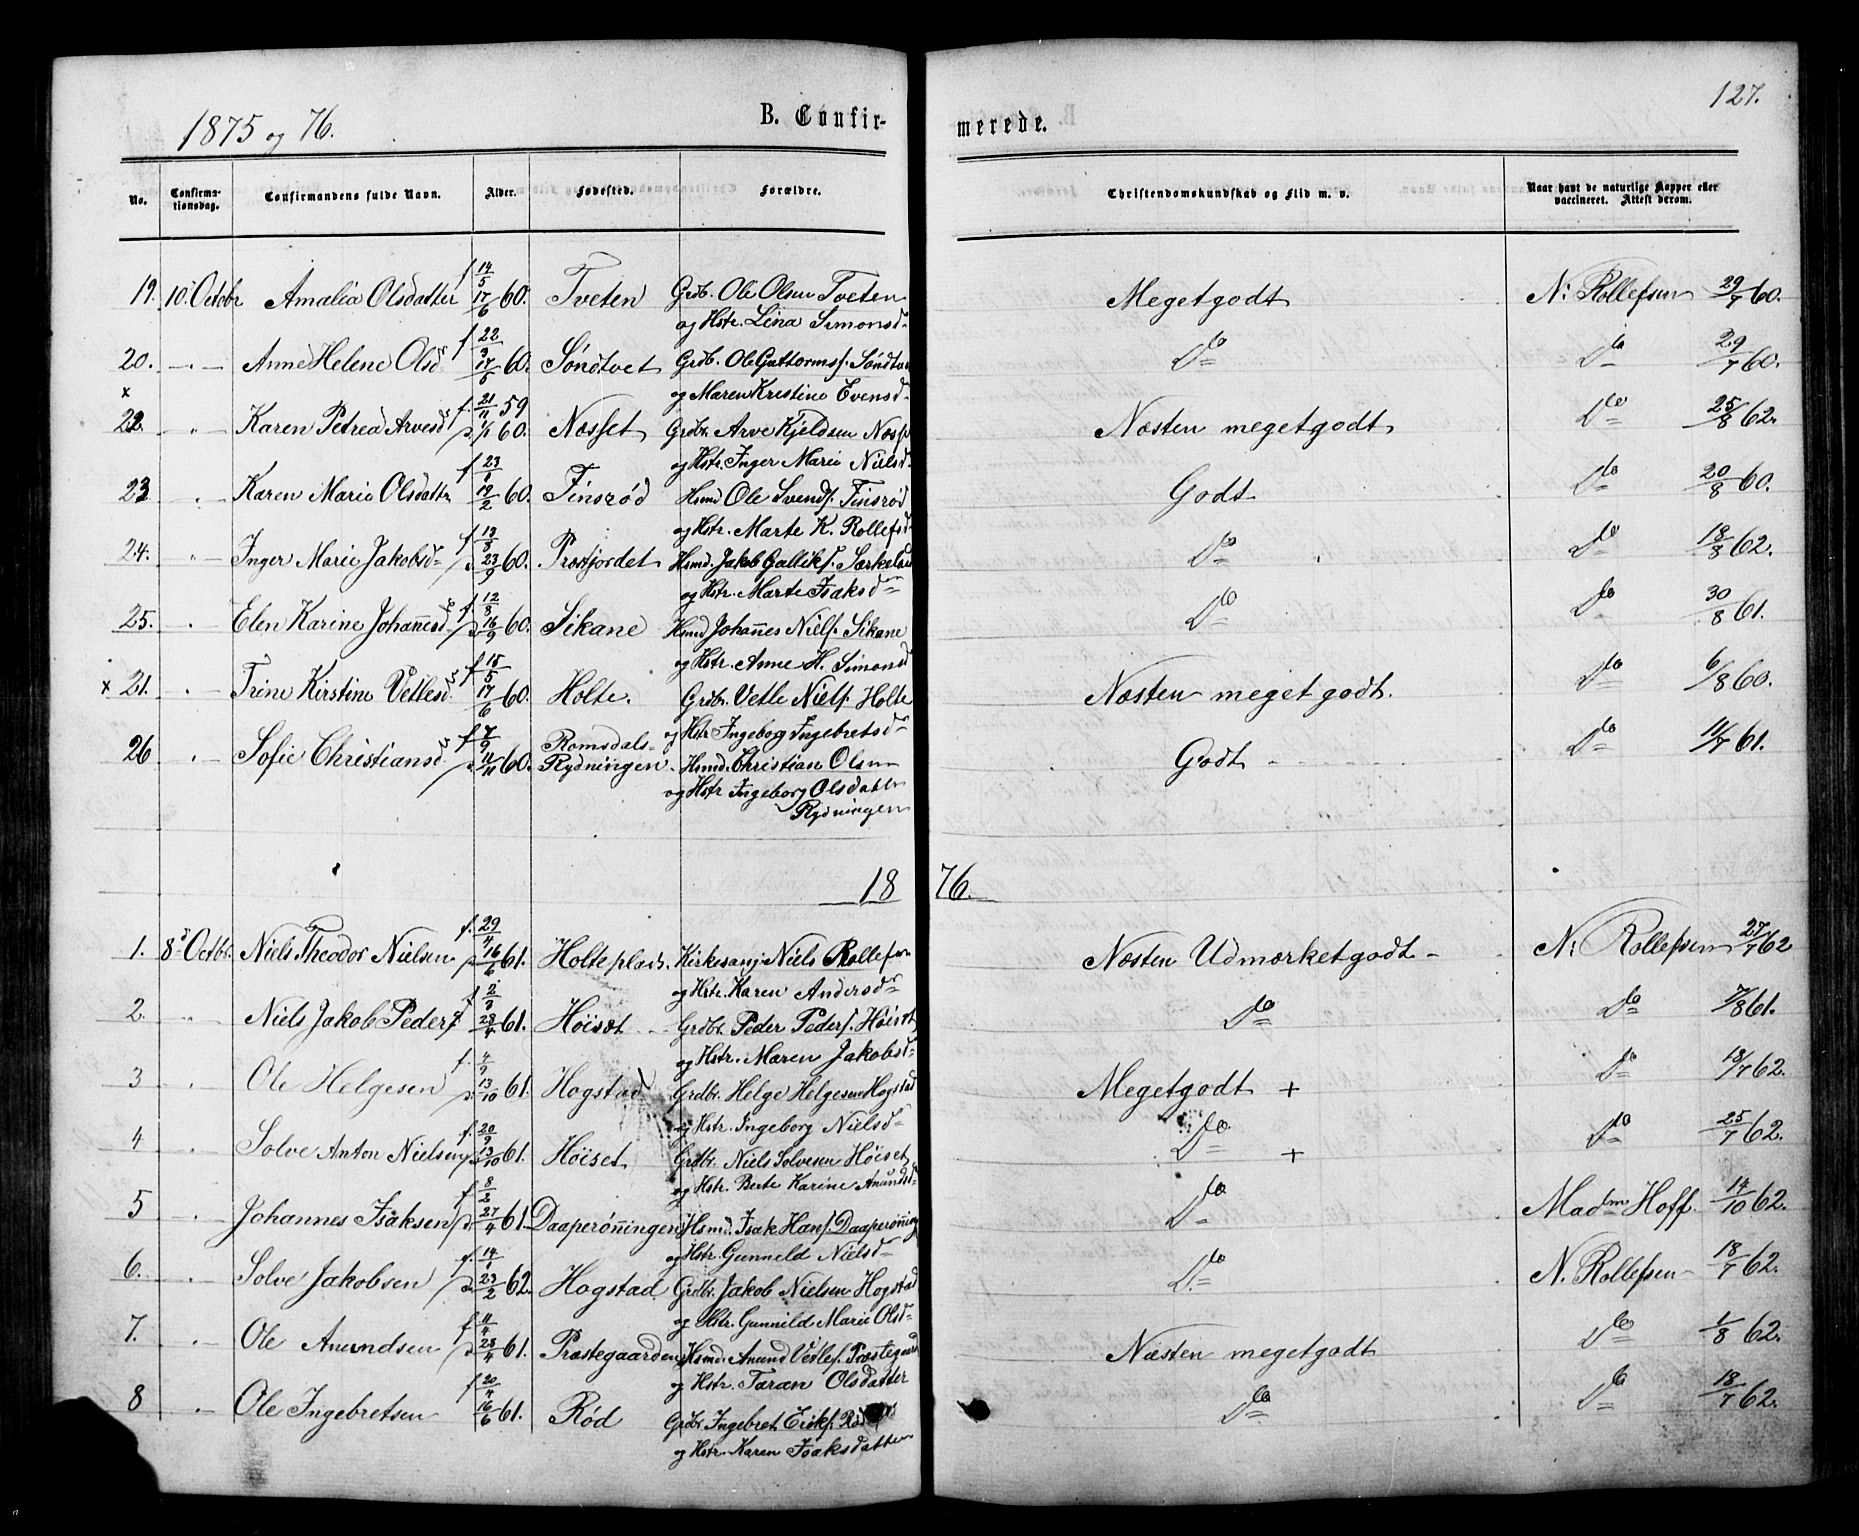 1875 og 76.
B. Confir-
merede.
127.
No. Confirma-tionsdag. Confirmandens fulde Navn. Alder. Fødested. Forældre. Christendomskundskab og Flid m. v. Naar havt de naturlige Kopper eller vaccineret. Attest derom.
19. 10. Octobr Amalia Olsdatter f 14/5 17/6 60. Tveten Grdb. Ole Olsen Tveten Megetgodt N. Rollefsen 29/7 60.
og Hstr. Lina Simonsd.
20. - " - Anne Helene Olsd f 22/3 17/5 60. Søndtvet Grdb. Ole Guttormsf. Søndtvet Do Do 29/7 60.
x og Maren Kristine Evensd.
22. " Karen Petrea Arvesd f. 21/11 59 1/1 60. Næsset Grdbr. Arve Kjeldsen Næss Næsten megetgodt Do 25/8 62.
og Hstr. Inger Marie Nielsd.
23 - " - Karen Marie Olsdattr f 23/1 12/2 60. Finsrød Hsmd Ole Svendsf. Finsrød Godt Do 20/8 60.
og Hstr. Marte K. Rollefsd
24. " - Inger Marie Jakobsd. f 13/8 23/9 60. Præstjordet Hsmd. Jakob Gallikf. Do Do 18/8 62.
og Hstr. Marte Isaksd
25. " Elen Karine Johannesd f 12/8 16/9 60. Sikane Hsmd Johannes Nielf. Sikane Do Do 30/8 61.
og Hstr. Anne H. Simonsd
x 21. - " - Trine Kirstine Vetlesd f 15/5 17/6 60. Holte. Grdbr. Vetle Nielf. Holte Næsten meget godt. Do 6/8 60.
og Hstr Ingeborg Ingebretsd
26 " - Sofie Christiansd f 7/9 11/11 60. Romsdals-Rydningen. Hsmd. Christian Olsen Godt Do 11/7 61.
og Hstr Ingeborg Olsdattr
Rydningen
18 76.
1. 8. Octbr. Niels Theodor Nielsen f. 29/4 16/6 61. Holteplads. Kirkesanj. Niels Rollefsen Næsten Udmærketgodt - N. Rollefsen 27/7 62
og Hstr. Karen Andersd
2. " Niels Jakob Pedersf f 2/3 28/4 61. Høiset Grdbr. Peder Pedersf. Høiset Do Do 7/8 61.
og Hstr. Maren Jakobsd
3 " Ole Helgesen f. 4/9 13/10 61. Hogstad Grdbr. Helge Helgesen Hogstad Megetgodt + Do 18/7 62.
og Hstr. Ingeborg Nielsd
4 " Solve Anton Nielsen f. 20/9 13/10 61. Høiset Grdbr. Niels Solvesen Høiset Do + Do 25/7 62.
og Hstr. Berte Karine Anundsd
5 " - Johannes Isaksen f 8/2 27/4 61. Daaperønningen Hsmd. Isak Hansf. Daaperønning Do Madm Hoff. 14/10 62.
og Hstr. Gunneld Nielsd
6. " Solve Jakobsen f. 14/1 23/2 62. Hogstad Grdbr. Jakob Nielsen Hogstad Do N. Rollefsen 18/7 62.
og Hstr. Gunnild Marie Olsd
7. " - Ole Anundsen f 11/4 28/4 61. Præstegaarden Hsmd. Anund Vetlesf. Præstegaard Næsten megetgodt Do 1/8 62.
og Hstr. Taran Olsdatter
8 " - Ole Ingebretsen f 20/4 16/6 61. Rød Grdbr Ingebret Do Do 18/7 62.
og Hstr. Karen Isaksdatter